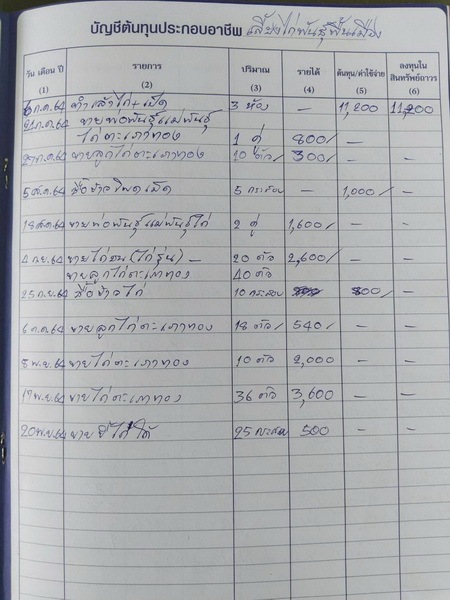 บัญชีต้นทุนประกอบอาชีพ เลี้ยงไก่พันธุ์พื้นเมือง
วัน เดือน ปี รายการ ปริมาณ รายได้ ต้นทุน/ค่าใช้จ่าย ลงทุนในสินทรัพย์ถาวร
(1) (2) (3) (4) (5) (6)
6 ก.ค.64 ทำเล้าไก่+เป็ด 3 ห้อง – 11,200 11,200
21 ก.ค.64 ขายพ่อพันธุ์แม่พันธุ์
ไก่ตะเภาทอง 1 คู่ 800/ –
ก.ค.64 ขายลูกไก่ตะเภาทอง 10 ตัว/ 300/ – –
5 ส.ค.64 ซื้อข้าวโพดเม็ด 5 กระสอบ – 1,000/ –
18 ส.ค.64 ขายพ่อพันธุ์แม่พันธุ์ไก่ 2 คู่ 1,600/ – –
4 ก.ย.64 ขายไก่ (ไก่รุ่น) – 20 ตัว 2,600/ – –
ขายลูกไก่ตะเภาทอง 40 ตัว
25 ก.ย.64 ซื้อข้าวไก่ 10 กระสอบ 800/ –
6 ต.ค.64 ขายลูกไก่ตะเภาทอง 18 ตัว/ 540/ – –
8 พ.ย.64 ขายไก่ตะเภาทอง 10 ตัว 2,000 – –
17 พ.ย.64 ขายไก่ตะเภาทอง 36 ตัว 3,600 – –
20 พ.ย.64 ขายขี้ไก่ได้ 25 กระสอบ 500